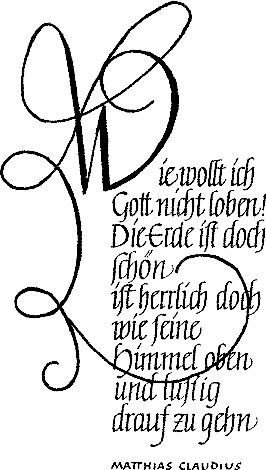 Wie wollt ich
Gott nicht loben!
Die Erde ist doch
schön
ist herrlich doch
wie seine
Himmel oben
und lustig
drauf zu gehn
MATTHIAS CLAUDIUS